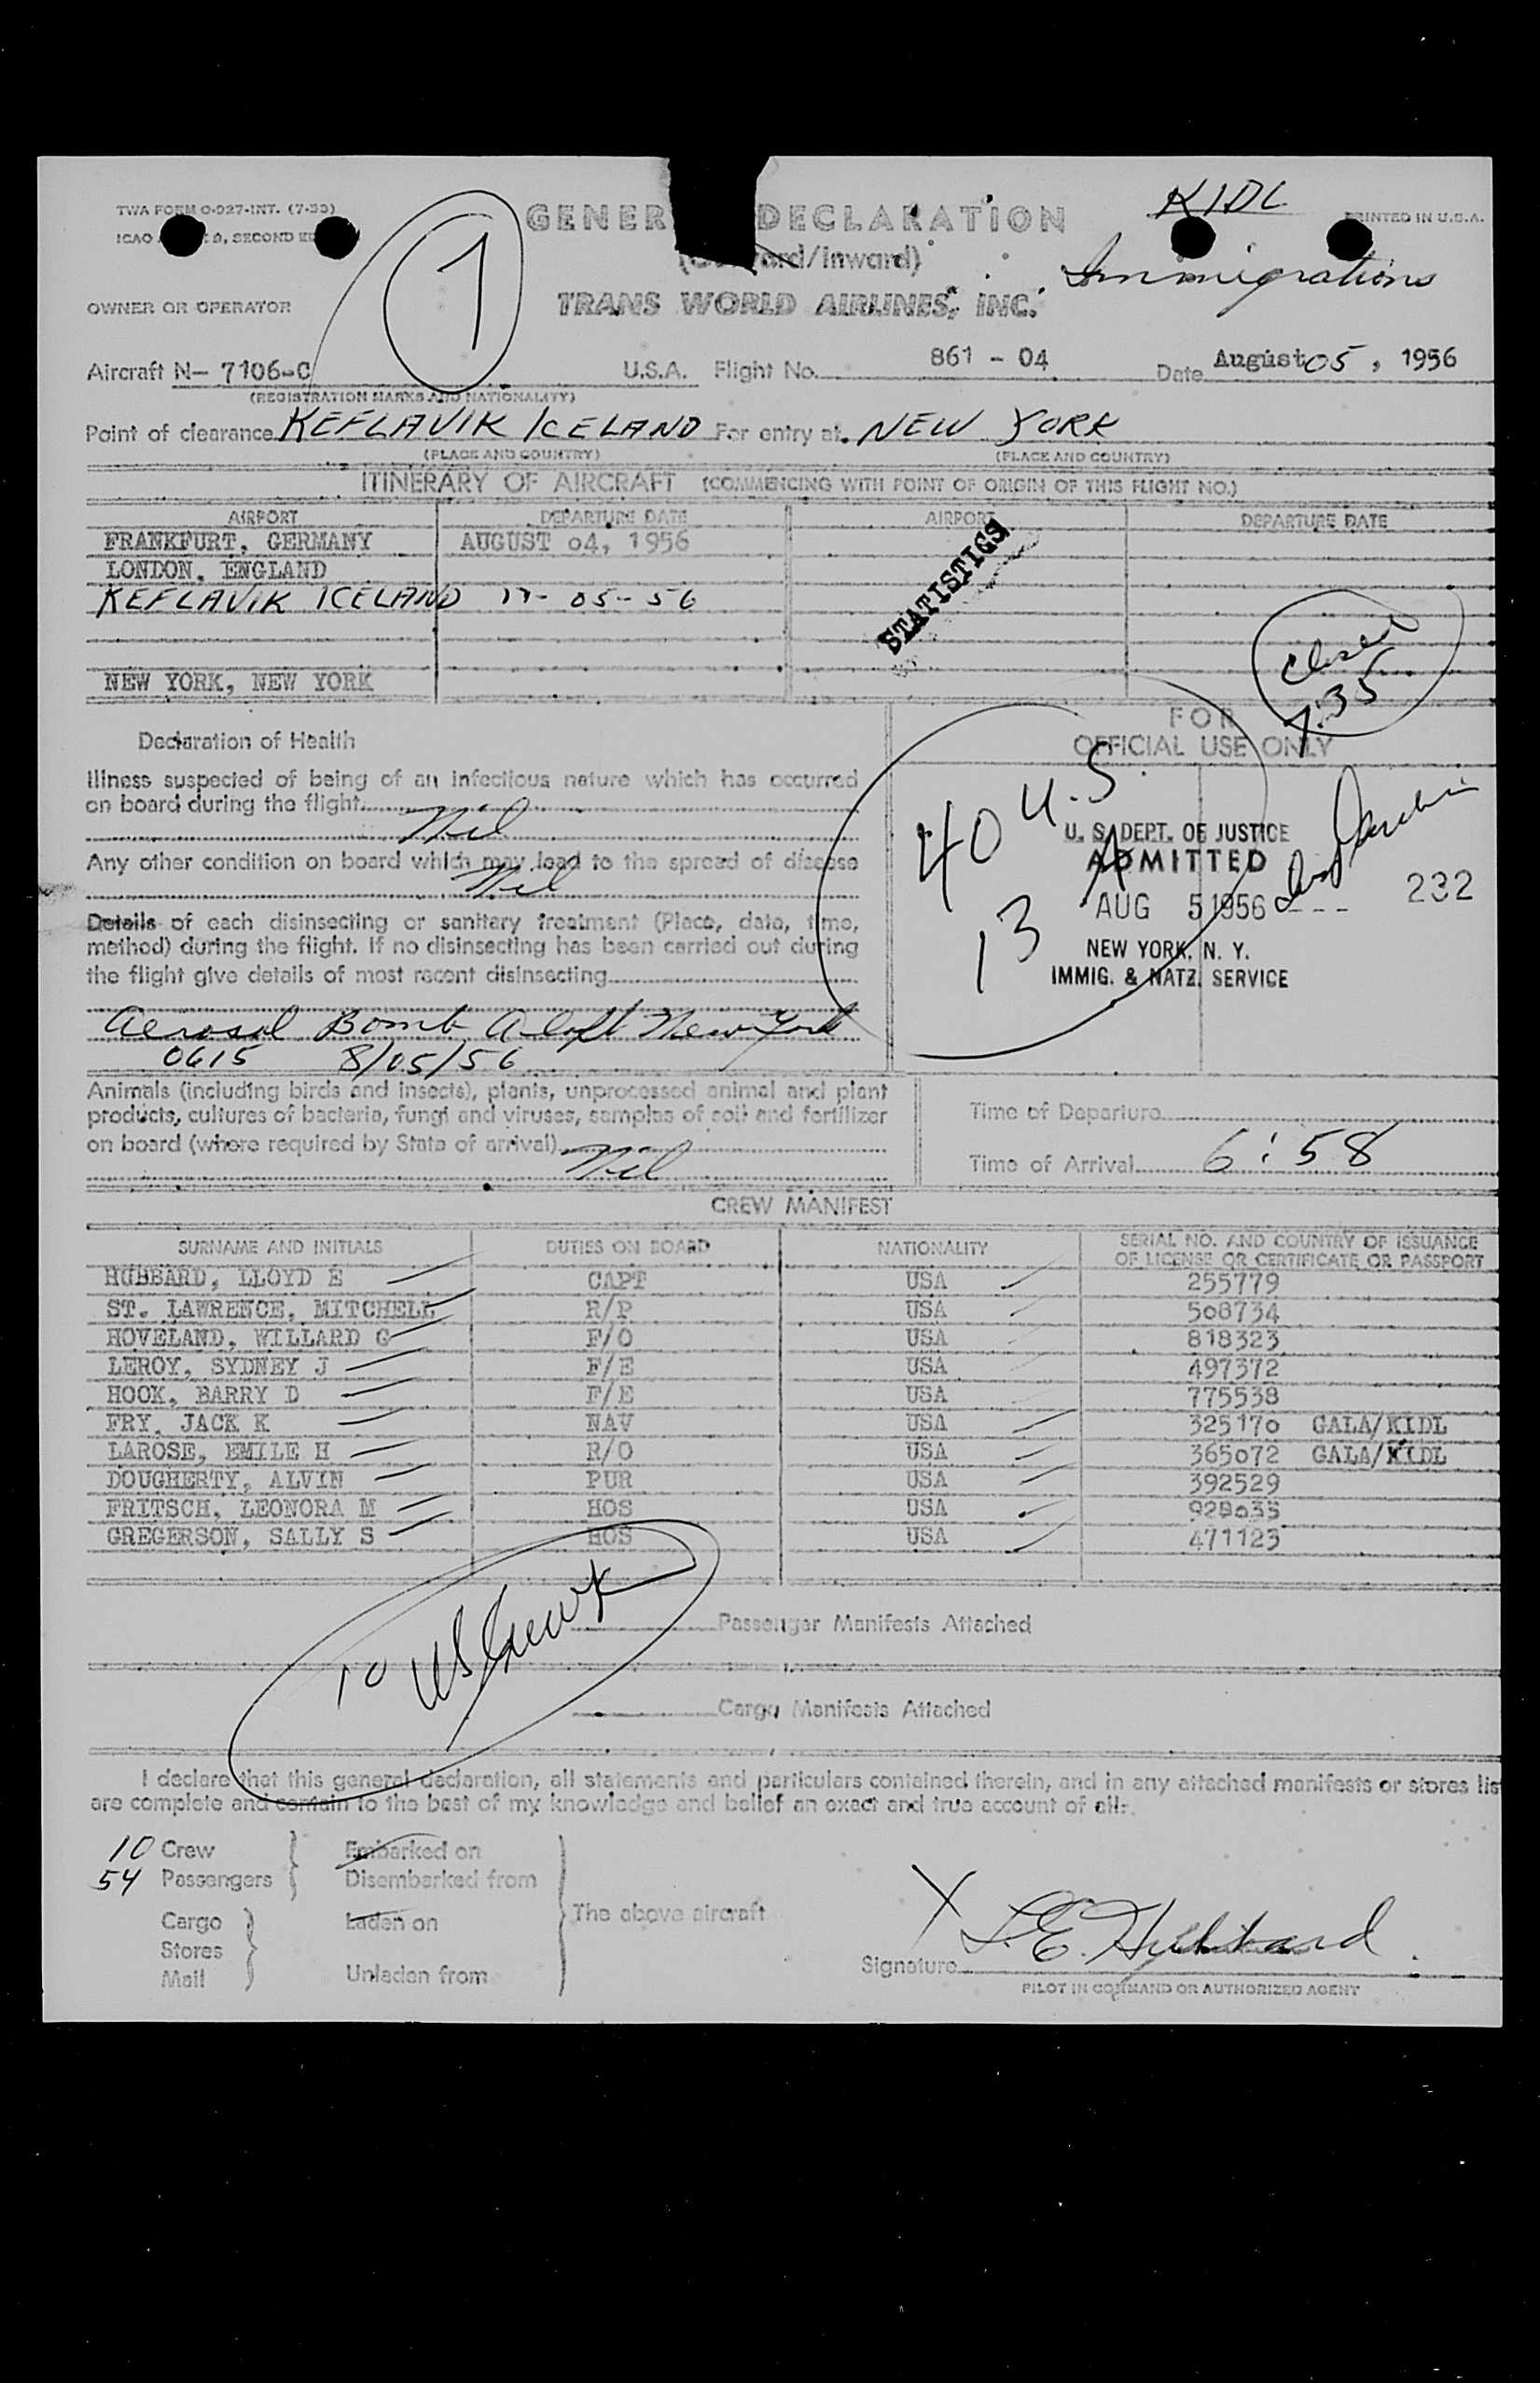 TWA FORM O-927-INT. (7-53)
ICAO 9, SECOND
GENER DECLARATION
KIDL
PRINTED IN U.S.A.
1
/Inward)
Immigrations
OWNER OR OPERATOR
TRANS WORLD AIRLINES, INC.
Aircraft N- 7106-C U.S.A. Flight No. 861 - 04 Date August 05, 1956
(REGISTRATION MARKS AND NATIONALITY)
Point of clearance KEFLAVIK ICELAND For entry at NEW YORK
(PLACE AND COUNTRY) (PLACE AND COUNTRY)
ITINERARY OF AIRCRAFT (COMMENCING WITH POINT OF ORIGIN OF THIS FLIGHT NO.)
AIRPORT DEPARTURE DATE AIRPORT DEPARTURE DATE
FRANKFURT, GERMANY AUGUST 04, 1956
LONDON, ENGLAND
KEFLAVIK ICELAND 05-56
STATISTICS
NEW YORK, NEW YORK
Closed
7:35
FOR
OFFICIAL USE ONLY
Declaration of Health
Illness suspected of being of an infectious nature which has occurred
on board during the flight
Nil
Any other condition on board which may lead to the spread of disease
Nil
Details of each disinsecting or sanitary treatment (Place, date, time,
method) during the flight. If no disinsecting has been carried out during
the flight give details of most recent disinsecting
Aerosol Bomb Aloft New York
0615 8/05/56
40 U.S.
13 A
U. S. DEPT. OF JUSTICE
ADMITTED
AUG 5 1956 --- 232
NEW YORK, N. Y.
IMMIG. & NATZ. SERVICE
Animals (including birds and insects), plants, unprocessed animal and plant
products, cultures of bacteria, fungi and viruses, samples of soil and fertilizer
on board (where required by State of arrival)
Nil
Time of Departure
Time of Arrival 6:58
CREW MANIFEST
SURNAME AND INITIALS DUTIES ON BOARD NATIONALITY SERIAL NO. AND COUNTRY OF ISSUANCE
OF LICENSE OR CERTIFICATE OR PASSPORT
HUBBARD, LLOYD E CAPT USA 255779
ST. LAWRENCE, MITCHELL R/P USA 508734
HOVELAND, WILLARD G F/O USA 818323
LEROY, SYDNEY J F/E USA 497372
HOOK, BARRY D F/E USA 775538
FRY, JACK K NAV USA 325170 GALA/KIDL
LAROSE, EMILE H R/O USA 365072 GALA/KIDL
DOUGHERTY, ALVIN PUR USA 392529
FRITSCH, LEONORA M HOS USA 928035
GREGERSON, SALLY S HOS USA 471123
10 US Crew
Passenger Manifests Attached
Cargo Manifests Attached
I declare that this general declaration, all statements and particulars contained therein, and in any attached manifests or stores lis
are complete and contain to the best of my knowledge and belief an exact and true account of all:
10 Crew Embarked on
54 Passengers Disembarked from
The above aircraft
Cargo Laden on
Stores
Mail Unladen from
X L.E. Hubbard
Signature
PILOT IN COMMAND OR AUTHORIZED AGENT